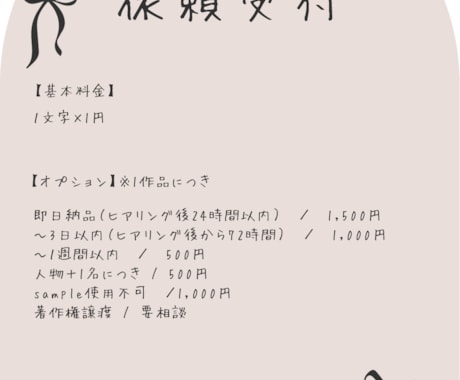 依頼受付
【基本料金】
1文字×1円
【オプション】※1作品につき
即日納品(ヒアリング後24時間以内) / 1,500円
～3日以内(ヒアリング後から72時間) / 1,000円
～1週間以内 / 500円
人物+1名につき / 500円
sample使用不可 /1,000円
著作権譲渡 / 要相談